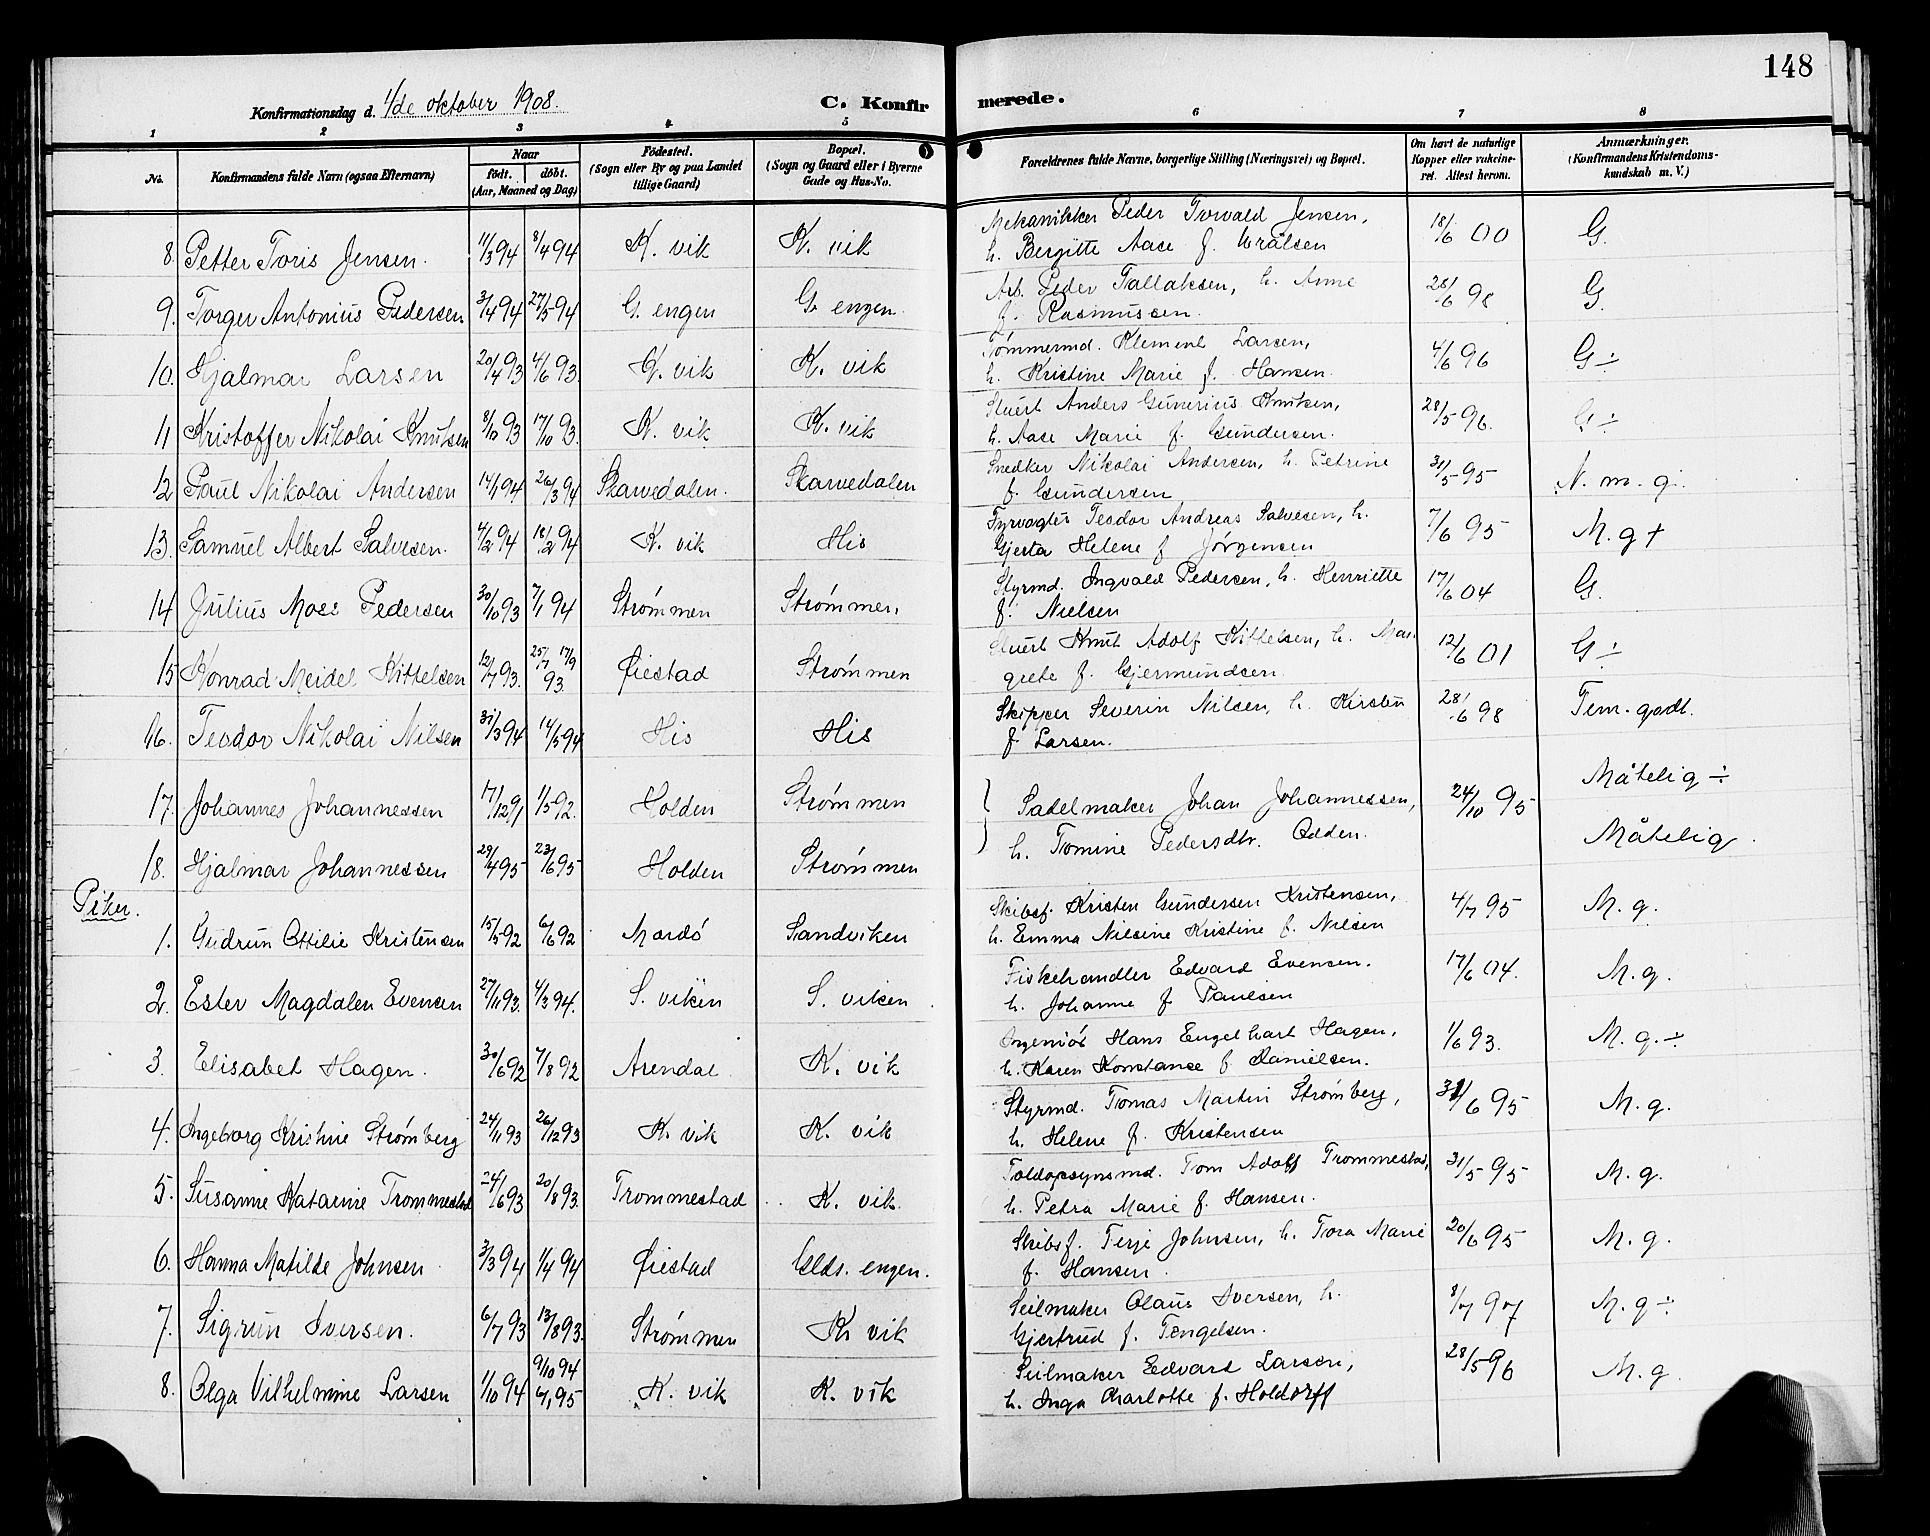 148
Konfirmationsdag d. 4/de oktober 1908.
C. Konfirmerede.
1 2 3 4 5 6 7 8
No.
Konfirmandens fulde Navn (ogsaa Efternavn)
Naar
födt. döbt.
(Aar, Maaned og Dag)
Födested.
(Sogn eller By og paa Landet
tillige Gaard)
Bopæl.
(Sogn og Gaard eller i Byerne
Gade og Hus-No.
Forældrenes fulde Navne, borgerlige Stilling (Næringsvei) og Bopæl.
Om havt de naturlige
Kopper eller vakcine-
ret. Attest herom.
Anmærkninger.
(Konfirmandens Kristendoms-
kundskab m. V.)
8. Petter Toris Jensen. 11/3 94 8/4 94 K. vik K. vik Mekanikker Peder Torvald Jensen, 18/6 00 G.
h. Bergitte Aase f. Wrålsen
9. Torger Antonius Pedersen 3/4 94 27/5 94 G. engen G. engen. Arb. Peder Tallaksen, h. Anne 28/6 98 G.
f. Rasmussen.
10. Hjalmar Larsen 20/4 93 4/6 93. K. vik K. vik Tømmermd. Klement Larsen, 4/6 96 G ÷
h. Kristine Marie f. Hansen.
11 Kristoffer Nikolai Knutsen 8/10 93 17/10 93. K. vik K. vik Stuert Anders Gunerius Knutsen, 28/5 96. G ÷
h. Aase Marie f. Gundersen.
12 Paul Nikolai Andersen 14/1 94 26/3 94 Skarvedalen. Skarvedalen Snedker Nikolai Andersen, h. Petrine 31/5 95 N. m. g.
f. Gundersen
13. Samuel Albert Salvesen. 4/2 94 18/2 94 K. vik His Fyrvagter Teodor Andreas Salvesen, h. 7/6 95 M. g +
Gjerta Helene f Jørgensen
14 Julius Mose Pedersen 30/10 93 7/1 94 Strømmen Strømmen, Styrmd. Ingvald Pedersen, h. Henriette 17/6 04 G.
f. Nielsen
15 Konrad Meidel Kittelsen 12/7 93. 25/7 17/9 93. Øiestad Strømmen Stuert Knut Adolf Kittelsen, h. Mar- 12/6 01 G ÷
grete f. Gjermundsen.
16. Teodor Nikolai Nilsen 31/3 94 14/5 94 His His Skipper Severin Nilsen, h. Kirsten 28/6 98 Tem. godt.
f Larsen.
17. Johannes Johannessen 17/12 91 1/5 92. Holden Strømmen Sadelmaker Johan Johannessen, 24/10 95 Måtelig ÷
18. Hjalmar Johannessen 29/4 95 23/6 95 Holden Strømmen h. Tomine Pedersdtr. Odden. Måtelig.
Piker.
1. Gudrun Ottilie Kristensen 15/5 92 6/6 92 Mardö Sandviken Skibsf. Kristen Gundersen Kristensen, 4/7 95 M. g.
h. Emma Nilsine Kristine f. Nilsen
2. Ester Magdalen Evensen 27/11 93. 4/3 94. S. viken S. viken. Fiskehandler Edvard Evensen. 17/6 04. M. g.
h. Johanne f Paulsen
3. Elisabet Hagen. 30/6 92 7/8 92 Arendal. K. vik Ingeniör Hans Engelhart Hagen, 1/6 93. M. g. ÷
h. Karen Konstanse f. Danielsen.
4. Ingeborg Kristine Strømberg 24/11 93 26/12 93 K. vik K. vik Styrmd. Tomas Martin Strømberg, 31/6 95 M. g.
h. Helene f. Kristensen
5. Susanne Katarine Trommestad 24/6 93 20/8 93. Trommestad K. vik. Toldopsynsmd. Tom Adolf Trommestad, 31/5 95 M. g.
h. Petra Marie f. Hansen.
6. Hanna Matilde Johnsen 3/3 94 1/4 94 Øiestad Glds. engen. Skibsf. Terje Johnsen, h. Tora Marie 20/6 95 M. g.
f. Hansen.
7. Sigrun Iversen. 6/7 93 13/8 93. Strømmen K. vik Seilmaker Olaus Iversen, h. 8/7 97 M. g ÷
Gjertrud f. Tengelsen.
8. Olga Vilhelmine Larsen 1/10 94 9/10 94 6/1 95 K. vik K. vik Seilmaker Edvard Larsen, 28/5 96 M. g.
h. Inga Charlotte f. Holdorff